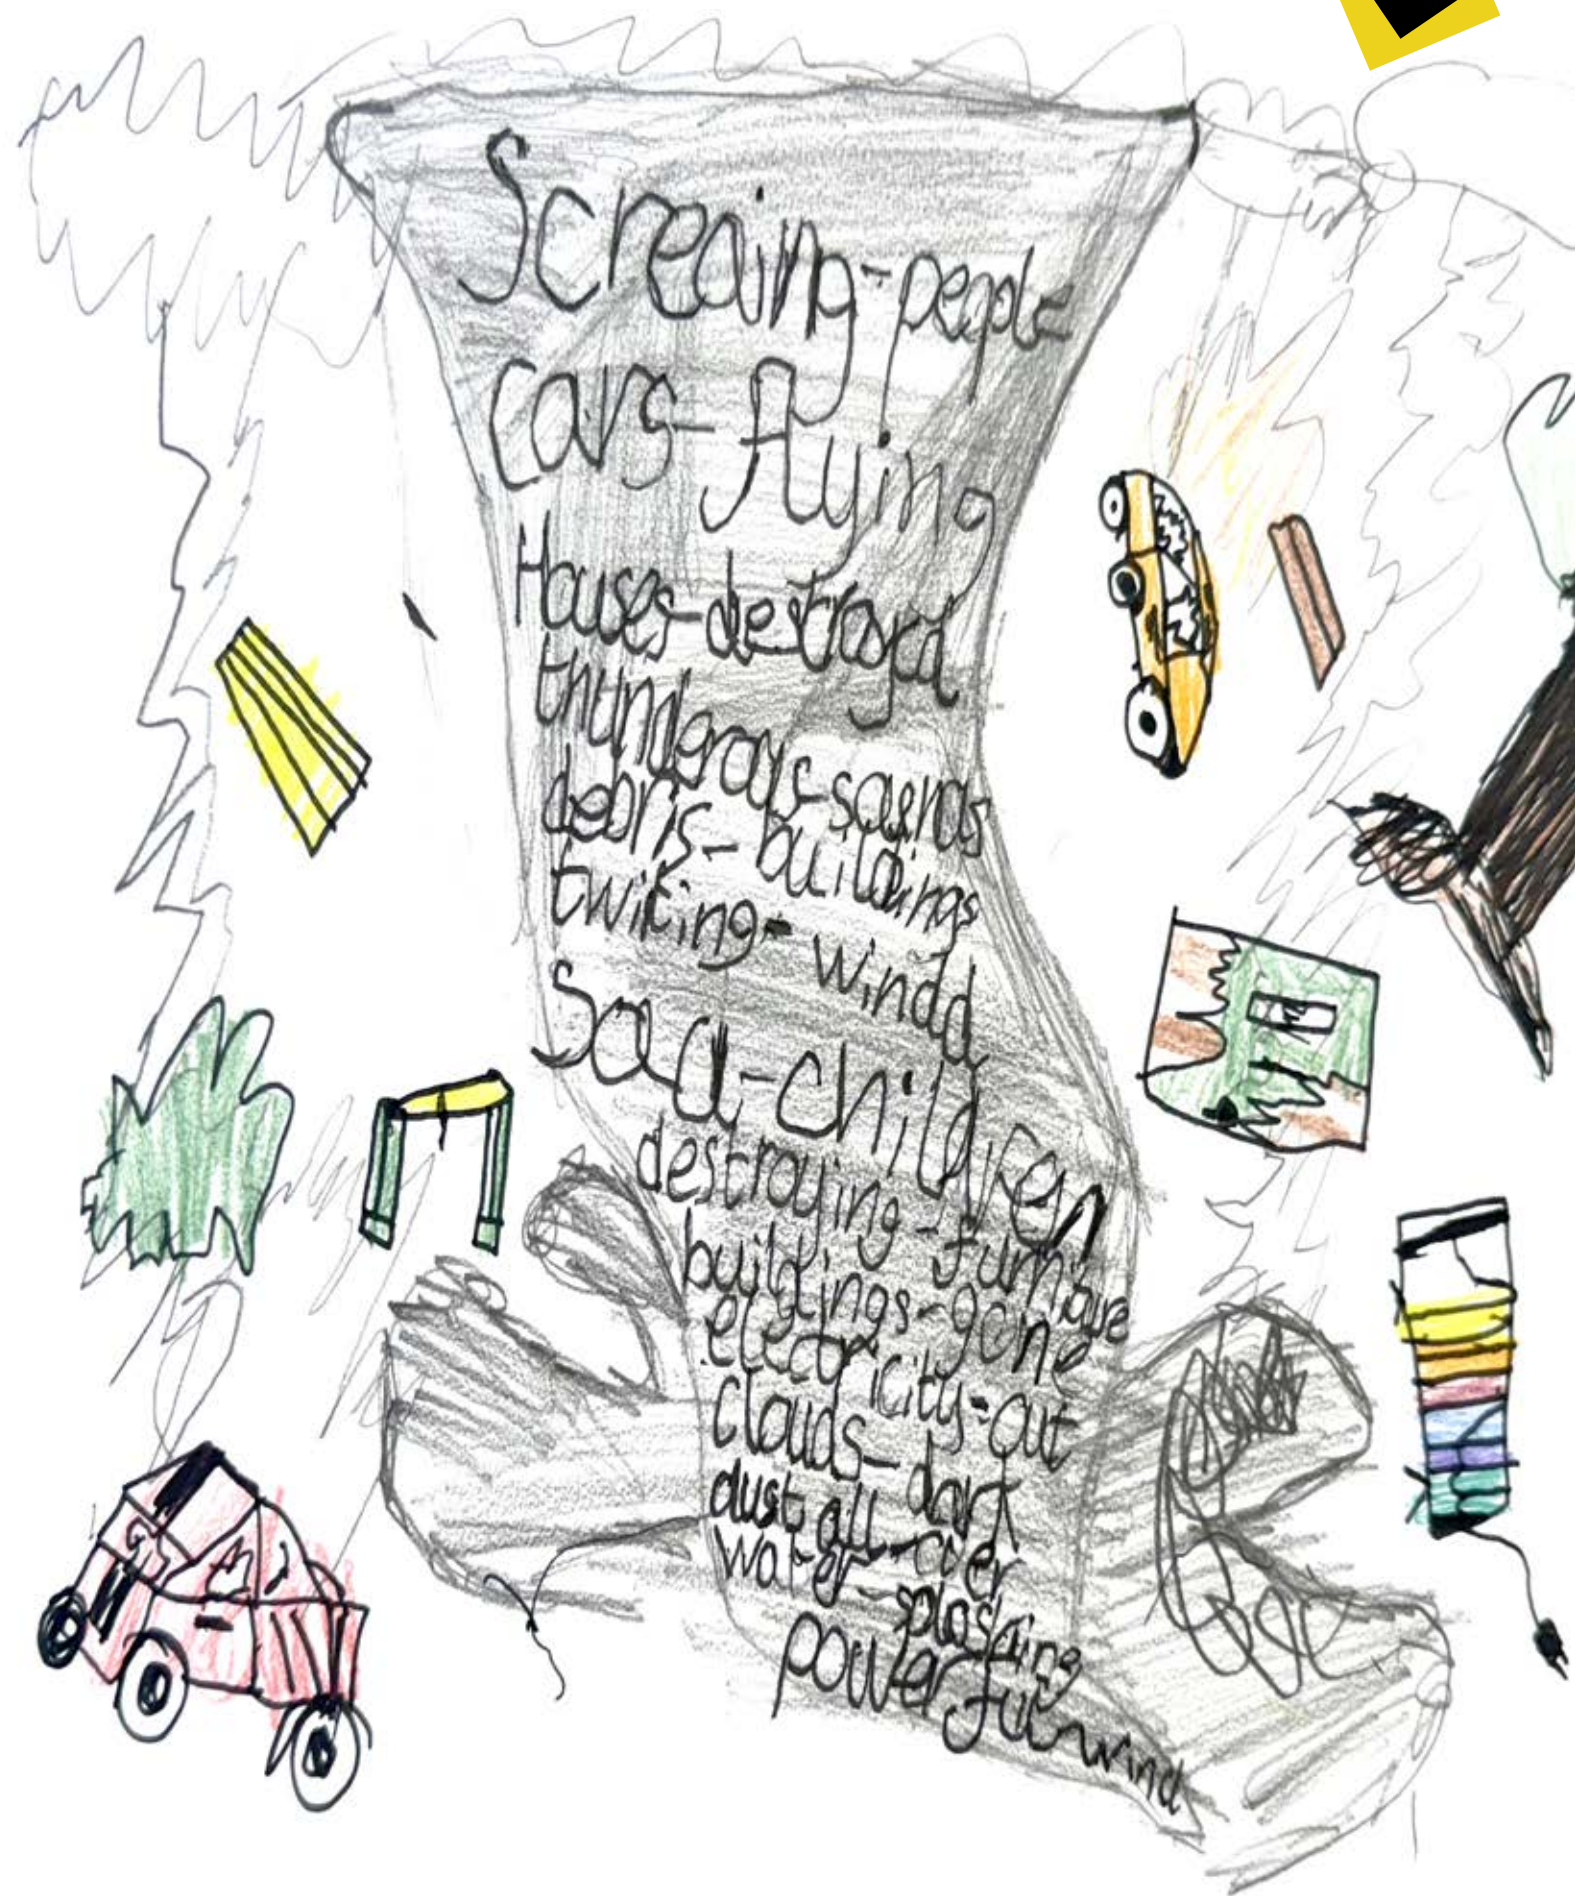 Screaing-people
cars-flying
Houses-destroyed
thunderous-sounds
debris-buildings
twiting-windd
Sad-children
destroying-furniture
buildings-gone
electricity-out
clouds-dark
dust all-over
water-splashing
powerful-wind